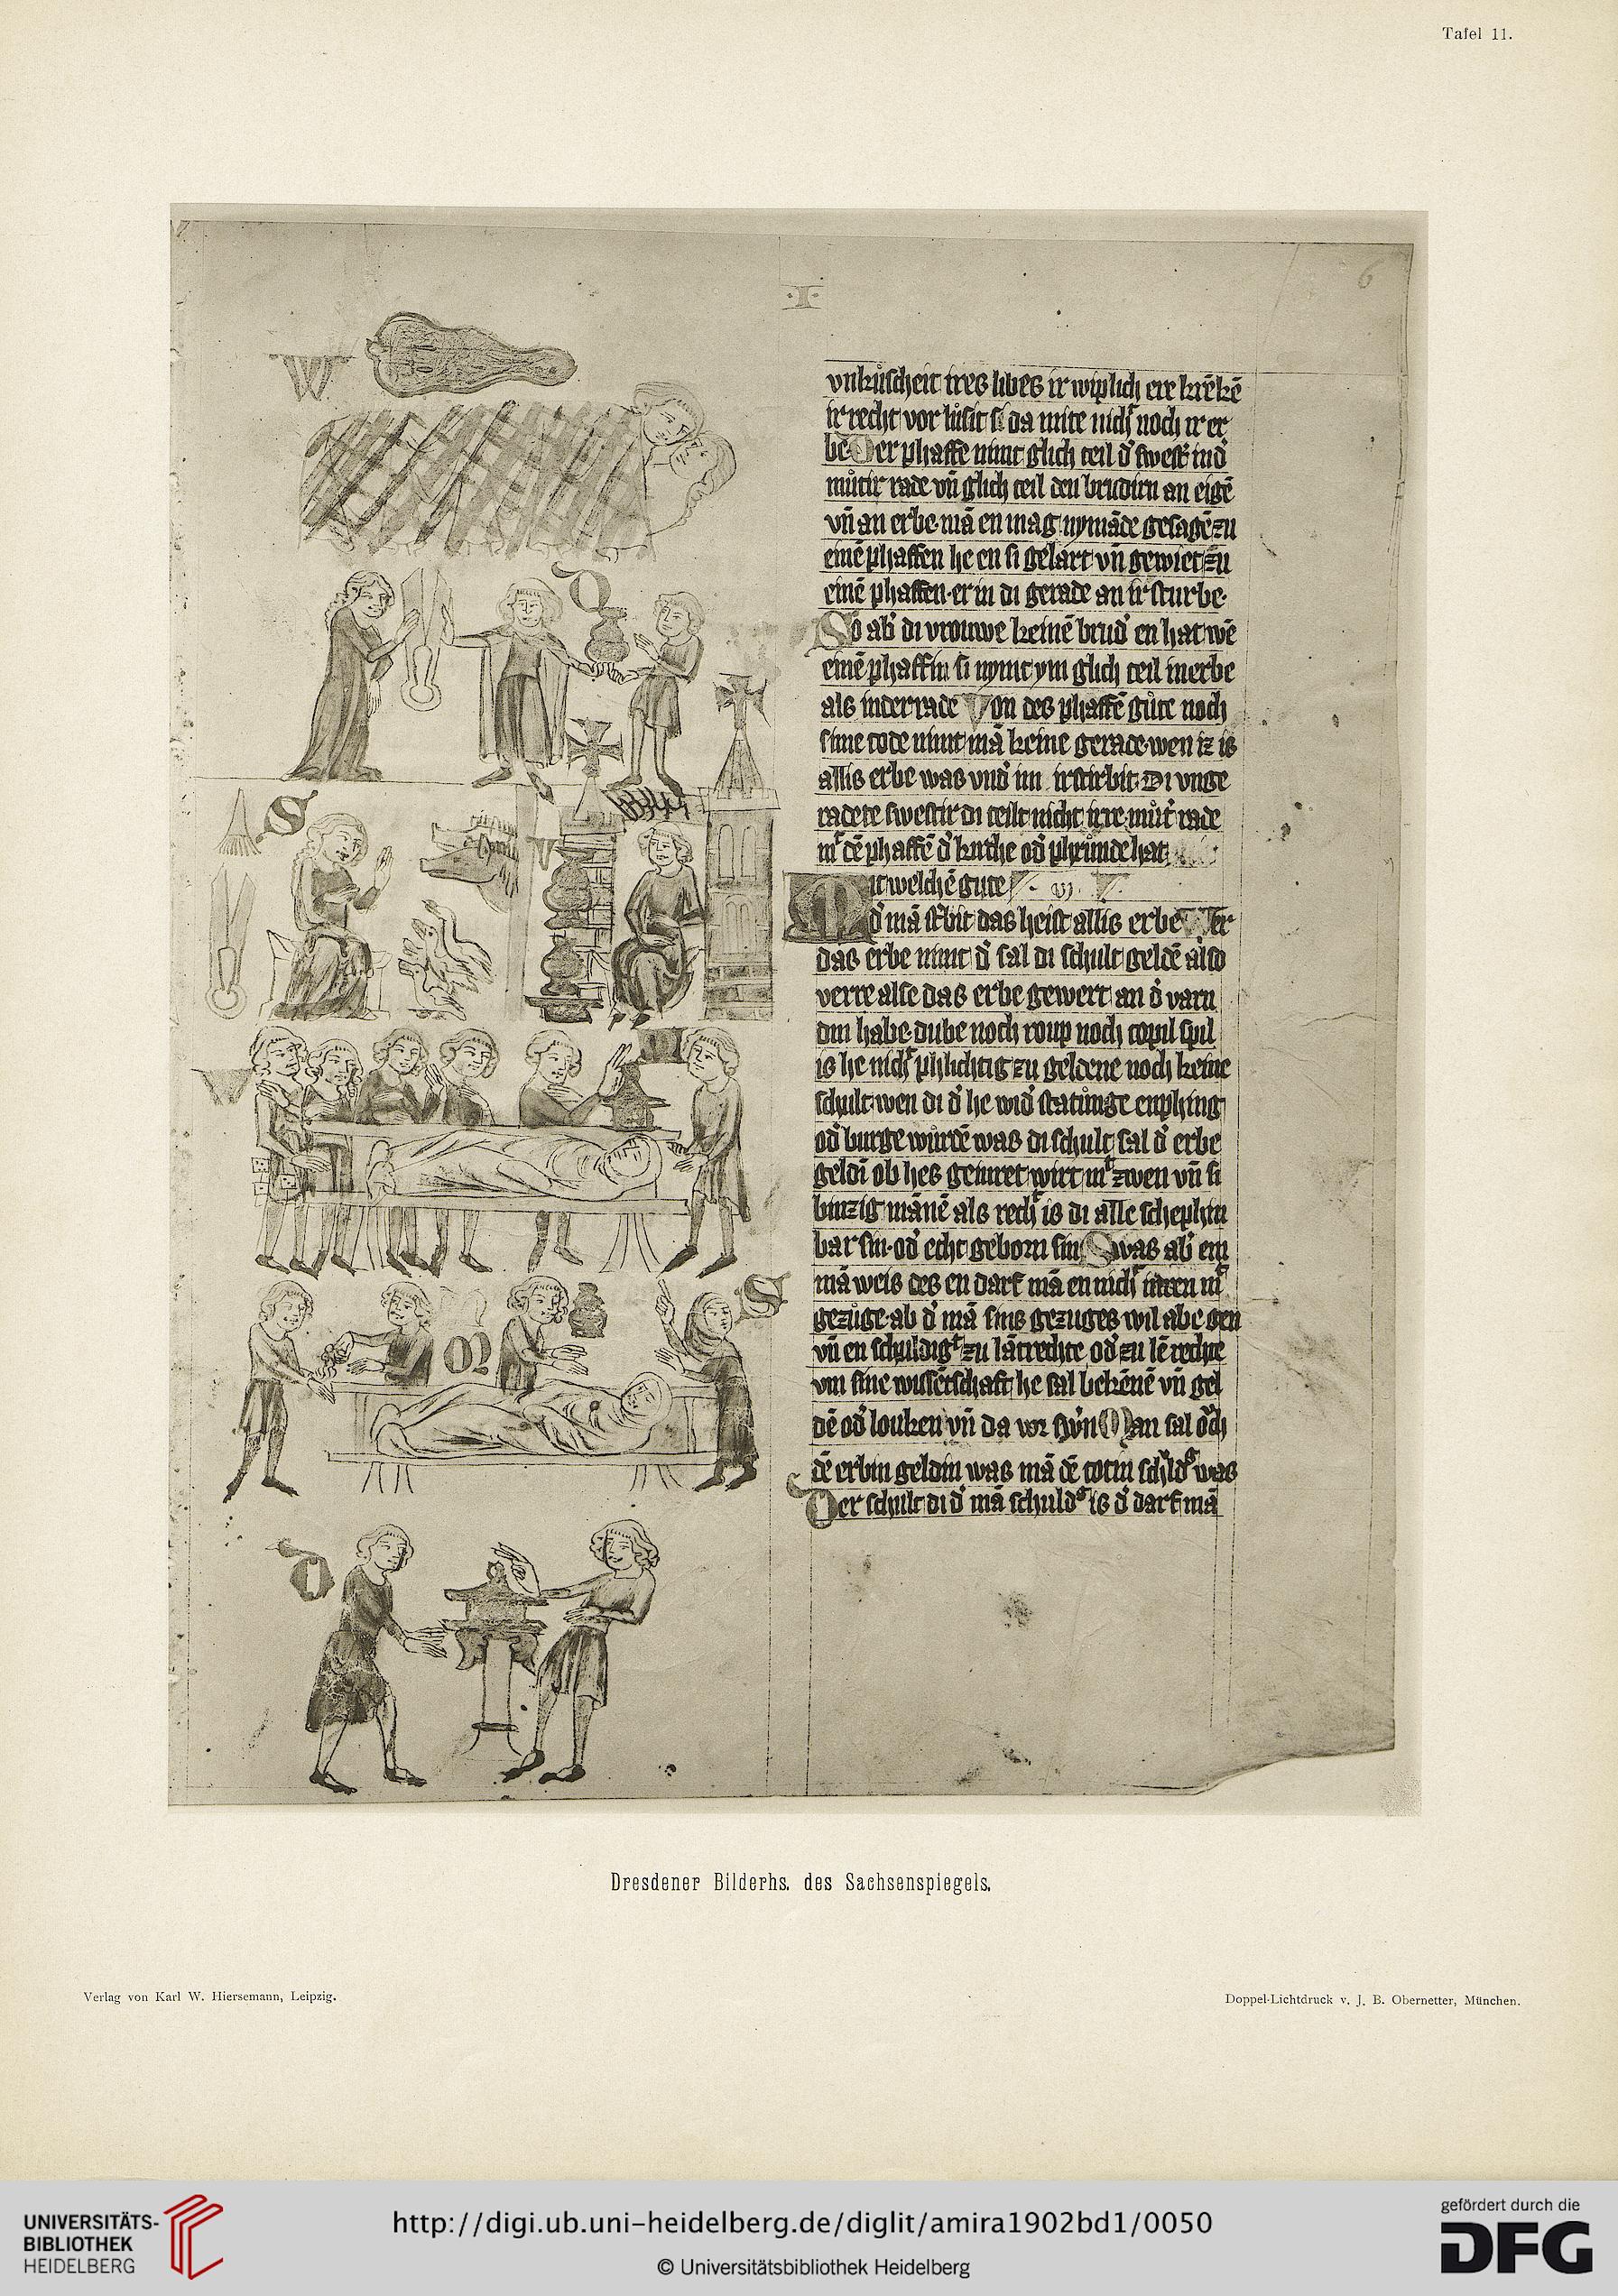 Tafel 11.
·I·
6
W
D
S
V
W
S
M
D
vnkůscheit ires libes ir wiplich ere krēkē
ir recht vor lůsit si da mite nicht noch ir er
be Der phaffe nimt glich teil d' swest' in d'
můtir rade vn̄ glich teil den brudirn an eigē
vn̄ an erbe· mā en mag nymāde gesagē zu
einē phaffen he en si gelart vn̄ gewiet zu
einē phaffen· er in di gerade an irsturbe·
So ab' di vrouwe keinē brud' en hat wē
einē phaffin si nymt ym glich teil inerbe
als inder rade Von des phaffē gůte noch
sime tode nimt mā keine gerade· wen iz is
allis erbe was vnd' im irstirbit· Di vnge
radete swestir di teilt nicht irre můt' rade
mt dē phaffē d' kirche od' phrůnde hat
Mit welchē gute
d' mā st'bit das heist allis erbe Wer
das erbe nimt d' sal di schult geldē also
verre alse das erbe gewert an d' varn
din habe· dube noch roup noch topil spil
is he nicht phlichtig zu geldene noch keine
schult wen di d' he wid' statůnge enphing
od' burge wůrdē was di schult sal d' erbe
geldī ob hes geinret wirt mt zwen vn̄ si
binzig mānē als recht is di alle schephin
bar sin· od' echt geborn sin Swas ab' ein
mā weis des en darf mā en nicht inren mt
gezůge· ab d' mā sins gezuges wil abe gen
vn̄ en schuldigt zu lātrechte od' zu lē rechte
vm sine wissētschaft he sal bekēnē vn̄ gel
dē od' louken vn̄ da vor swn Man sal och
dē erbin geldin was mā dē totin schld' was
Der schult di d' mā schuld' is d' darf mā
Dresdener Bilderhs. des Sachsenspiegels.
Verlag von Karl W. Hiersemann, Leipzig.
Doppel-Lichtdruck v. J. B. Obernetter, München.
UNIVERSITÄTS-
BIBLIOTHEK
HEIDELBERG
http://digi.ub.uni-heidelberg.de/diglit/amira1902bd1/0050
© Universitätsbibliothek Heidelberg
gefördert durch die
DFG